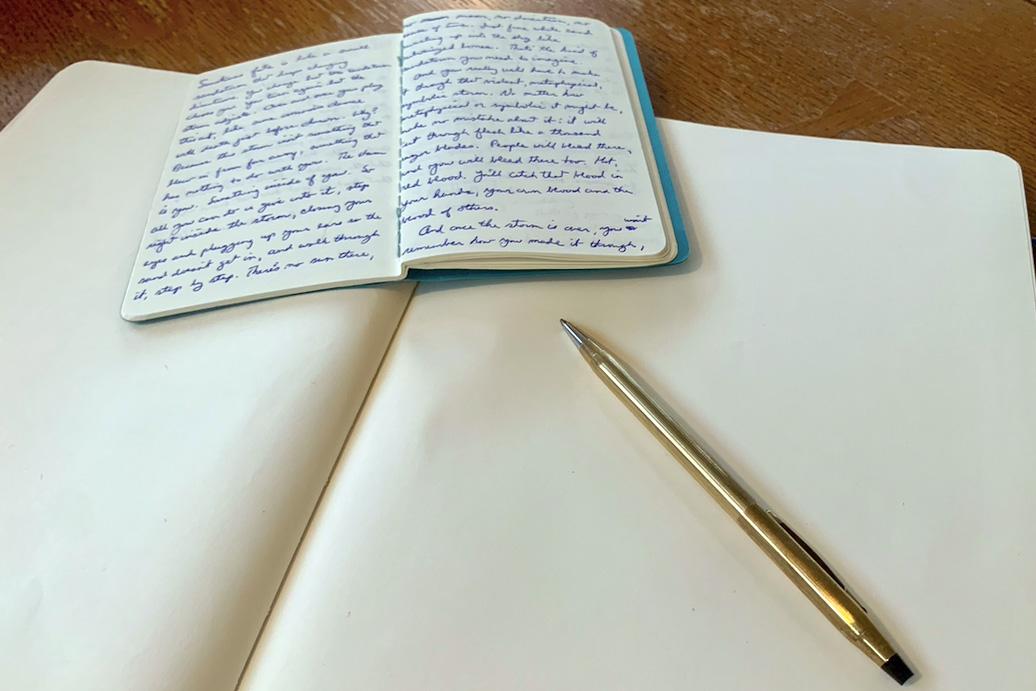 Sometimes fate is like a small
sandstorm that keeps changing
directions. You change but the sandstorm
chases you. You turn again but the
storm adjusts. Over and over you play
this out, like some ominous dance
with death just before dawn. Why?
Because this storm isn't something that
blew in from far away, something that
has nothing to do with you. The storm
is you. Something inside of you. So
all you can do is give into it, step
right inside the storm, closing your
eyes and plugging up your ears so the
sand doesn't get in, and walk through
it, step by step. There's no sun there,
no moon, no direction, no
sense of time. Just fine white sand
swirling up into the sky like
pulverized bones. That's the kind of
sandstorm you need to imagine.
And you really will have to make
it through that violent, metaphysical,
symbolic storm. No matter how
metaphysical or symbolic it might be,
make no mistake about it: it will
cut through flesh like a thousand
razor blades. People will bleed there,
and you will bleed there too. Hot,
red blood. You'll catch that blood in
your hands, your own blood and the
blood of others.
And once the storm is over, you won't
remember how you made it through,